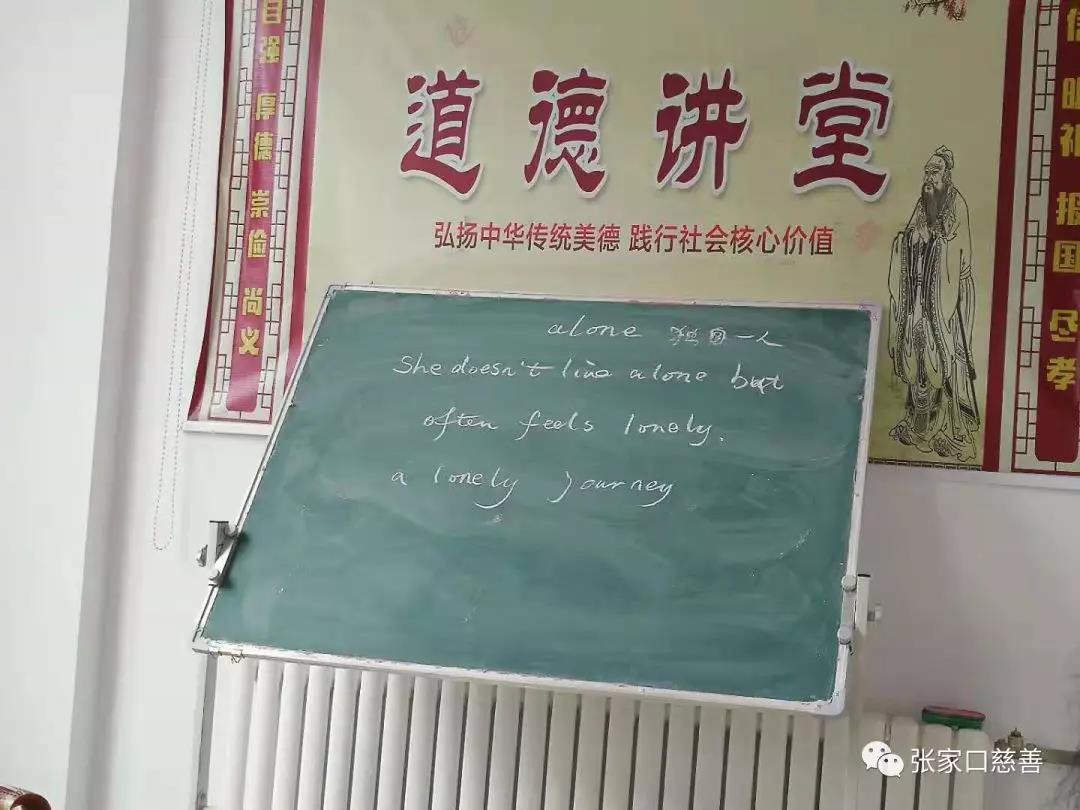 自强 厚德 崇俭 尚义
道德讲堂
弘扬中华传统美德 践行社会核心价值
信 明礼 报国 尽孝
alone 独自一人
She doesn't live alone but
often feels lonely.
a lonely journey
张家口慈善